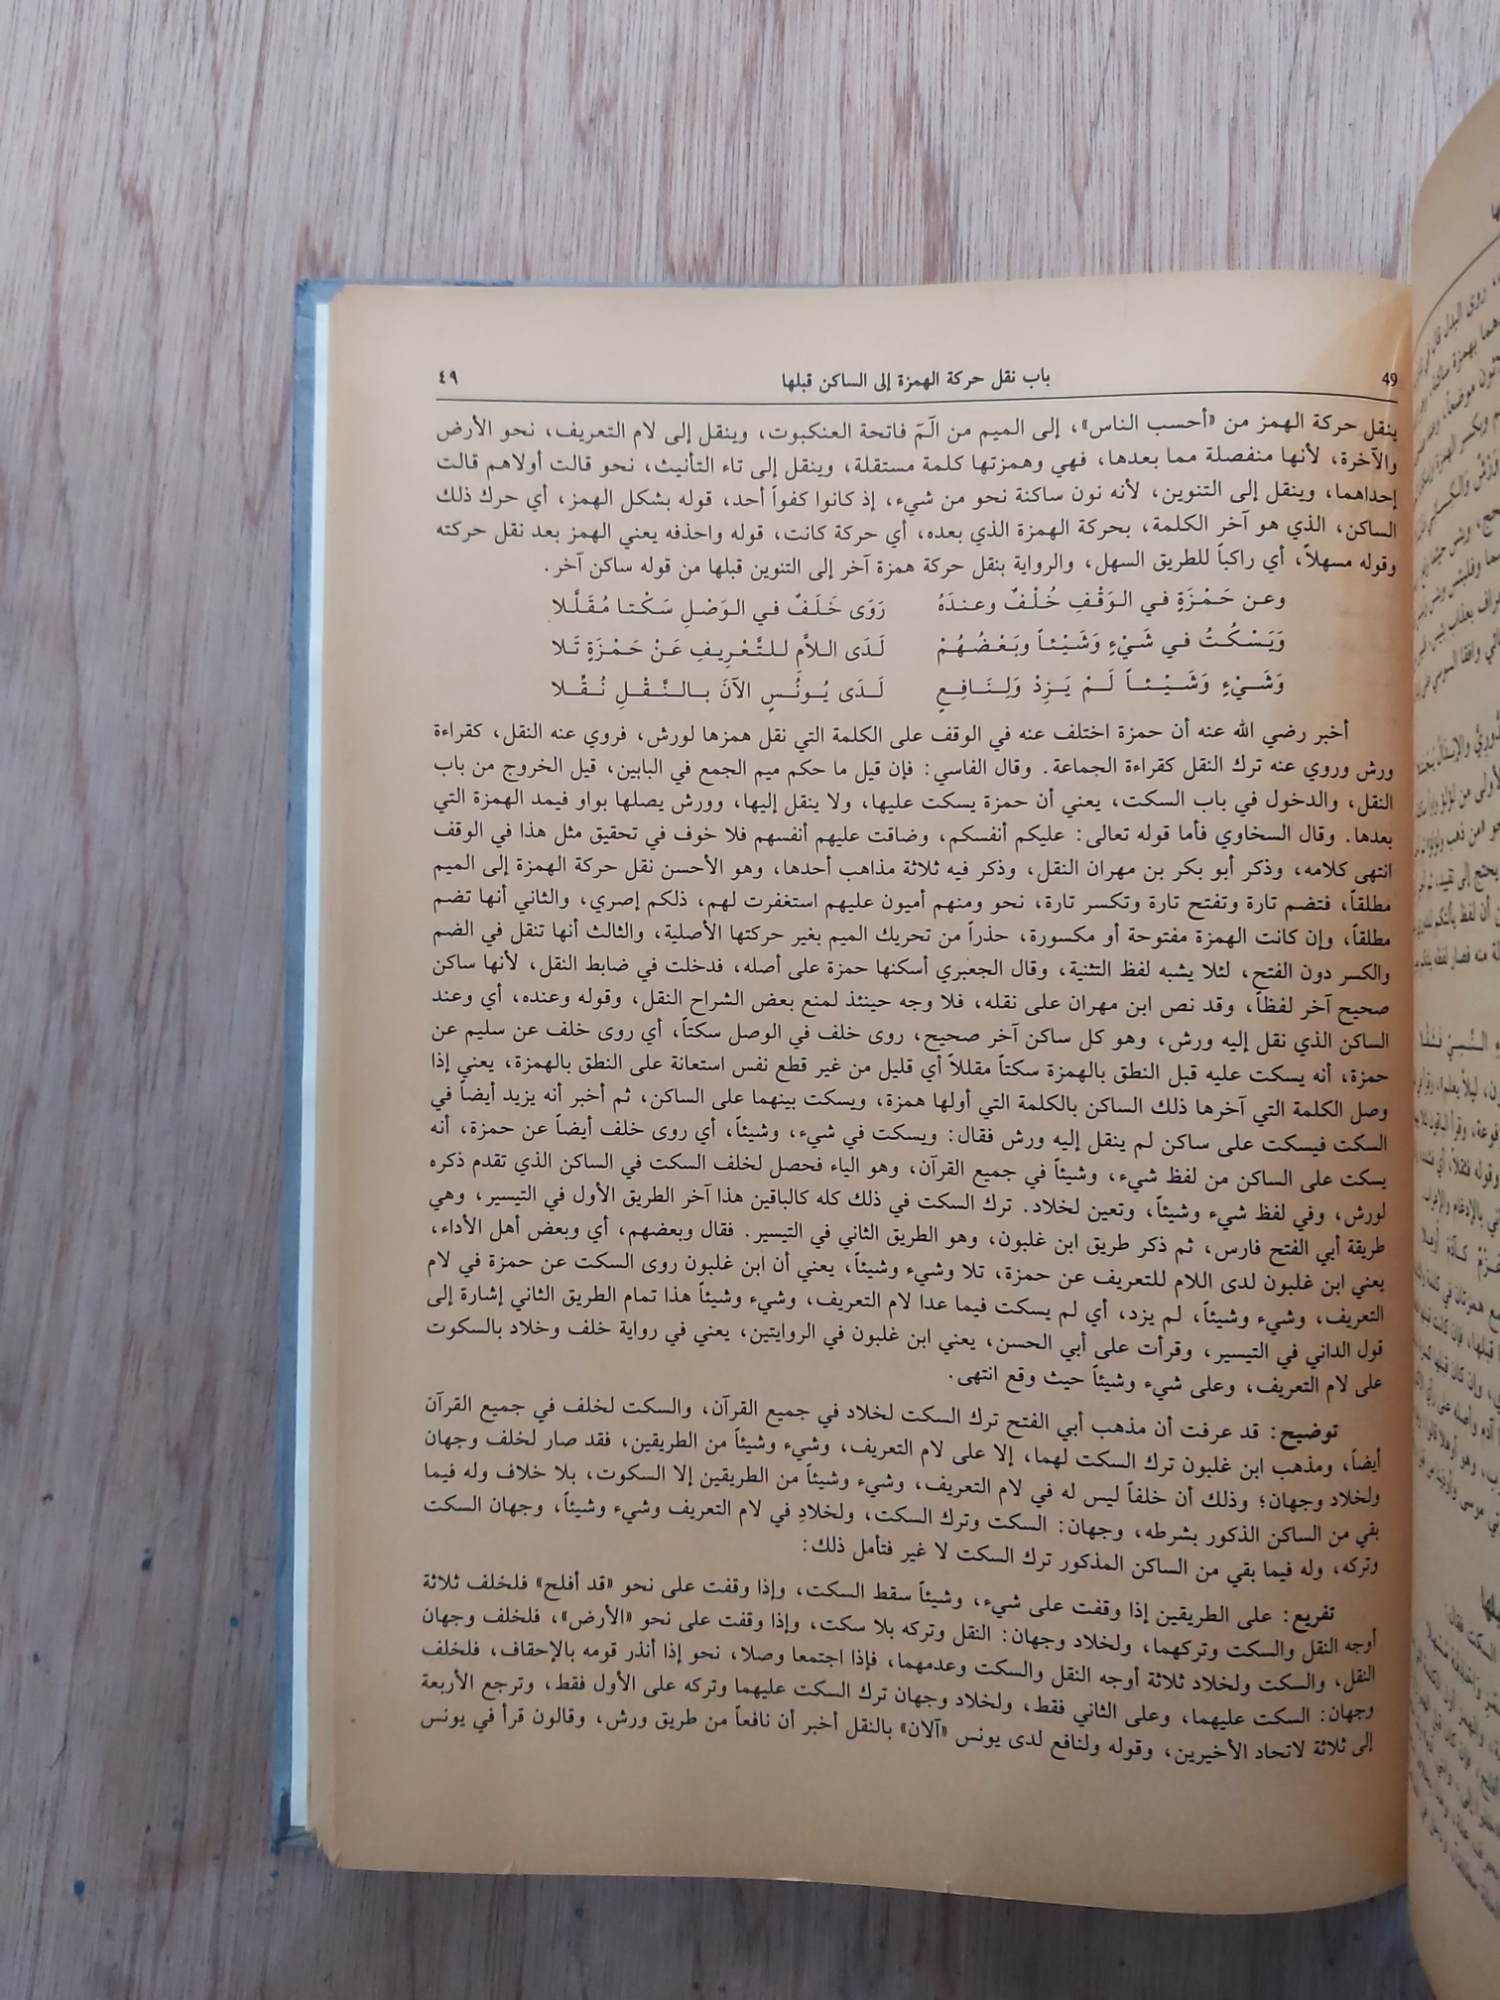 49 باب نقل حركة الهمزة إلى الساكن قبلها ٤٩
ينقل حركة الهمز من «أحسب الناس»، إلى الميم من الٓمٓ فاتحة العنكبوت، وينقل إلى لام التعريف، نحو الأرض
والآخرة، لأنها منفصلة مما بعدها، فهي وهمزتها كلمة مستقلة، وينقل إلى تاء التأنيث، نحو قالت أولاهم قالت
إحداهما، وينقل إلى التنوين، لأنه نون ساكنة نحو من شيء، إذ كانوا كفواً أحد، قوله بشكل الهمز، أي حرك ذلك
الساكن، الذي هو آخر الكلمة، بحركة الهمزة الذي بعده، أي حركة كانت، قوله واحذفه يعني الهمز بعد نقل حركته
وقوله مسهلاً، أي راكباً للطريق السهل، والرواية بنقل حركة همزة آخر إلى التنوين قبلها من قوله ساكن آخر.
وعن حَمْزَةٍ في الوَقْفِ خُلْفٌ وعندَهُ رَوَى خَلَفٌ في الوَصْلِ سَكْتا مُقَلَّلا
وَيَسْكُتُ في شَيْءٍ وَشَيْئاً وبَعْضُهُمْ لَدَى اللاَّمِ للتَّعْرِيفِ عَنْ حَمْزَةٍ تَلا
وَشَيْءٍ وَشَيْئاً لَمْ يَزِدْ وَلِنَافِعٍ لَدَى يُونُسٍ الآنَ بالنَّقْلِ نُقِّلا
أخبر رضي الله عنه أن حمزة اختلف عنه في الوقف على الكلمة التي نقل همزها لورش، فروي عنه النقل، كقراءة
ورش وروي عنه ترك النقل كقراءة الجماعة. وقال الفاسي: فإن قيل ما حكم ميم الجمع في البابين، قيل الخروج من باب
النقل، والدخول في باب السكت، يعني أن حمزة يسكت عليها، ولا ينقل إليها، وورش يصلها بواو فيمد الهمزة التي
بعدها. وقال السخاوي فأما قوله تعالى: عليكم أنفسكم، وضاقت عليهم أنفسهم فلا خوف في تحقيق مثل هذا في الوقف
انتهى كلامه، وذكر أبو بكر بن مهران النقل، وذكر فيه ثلاثة مذاهب أحدها، وهو الأحسن نقل حركة الهمزة إلى الميم
مطلقاً، فتضم تارة وتفتح تارة وتكسر تارة، نحو ومنهم أميون عليهم استغفرت لهم، ذلكم إصري، والثاني أنها تضم
مطلقاً، وإن كانت الهمزة مفتوحة أو مكسورة، حذراً من تحريك الميم بغير حركتها الأصلية، والثالث أنها تنقل في الضم
والكسر دون الفتح، لئلا يشبه لفظ التثنية، وقال الجعبري أسكنها حمزة على أصله، فدخلت في ضابط النقل، لأنها ساكن
صحيح آخر لفظاً، وقد نص ابن مهران على نقله، فلا وجه حينئذ لمنع بعض الشراح النقل، وقوله وعنده، أي وعند
الساكن الذي نقل إليه ورش، وهو كل ساكن آخر صحيح، روى خلف في الوصل سكتاً، أي روى خلف عن سليم عن
حمزة، أنه يسكت عليه قبل النطق بالهمزة سكتاً مقللاً أي قليل من غير قطع نفس استعانة على النطق بالهمزة، يعني إذا
وصل الكلمة التي آخرها ذلك الساكن بالكلمة التي أولها همزة، ويسكت بينهما على الساكن، ثم أخبر أنه يزيد أيضاً في
السكت فيسكت على ساكن لم ينقل إليه ورش فقال: ويسكت في شيء، وشيئاً، أي روى خلف أيضاً عن حمزة، أنه
يسكت على الساكن من لفظ شيء، وشيئاً في جميع القرآن، وهو الياء فحصل لخلف السكت في الساكن الذي تقدم ذكره
لورش، وفي لفظ شيء وشيئاً، وتعين لخلاد. ترك السكت في ذلك كله كالباقين هذا آخر الطريق الأول في التيسير، وهي
طريقة أبي الفتح فارس، ثم ذكر طريق ابن غلبون، وهو الطريق الثاني في التيسير. فقال وبعضهم، أي وبعض أهل الأداء،
يعني ابن غلبون لدى اللام للتعريف عن حمزة، تلا وشيء وشيئاً، يعني أن ابن غلبون روى السكت عن حمزة في لام
التعريف، وشيء وشيئاً، لم يزد، أي لم يسكت فيما عدا لام التعريف، وشيء وشيئاً هذا تمام الطريق الثاني إشارة إلى
قول الداني في التيسير، وقرأت على أبي الحسن، يعني ابن غلبون في الروايتين، يعني في رواية خلف وخلاد بالسكوت
على لام التعريف، وعلى شيء وشيئاً حيث وقع انتهى.
توضيح: قد عرفت أن مذهب أبي الفتح ترك السكت لخلاد في جميع القرآن، والسكت لخلف في جميع القرآن
أيضاً، ومذهب ابن غلبون ترك السكت لهما، إلا على لام التعريف، وشيء وشيئاً من الطريقين، فقد صار لخلف وجهان
ولخلاد وجهان؛ وذلك أن خلفاً ليس له في لام التعريف، وشيء وشيئاً من الطريقين إلا السكوت، بلا خلاف وله فيما
بقي من الساكن الذكور بشرطه، وجهان: السكت وترك السكت، ولخلادِ في لام التعريف وشيء وشيئاً، وجهان السكت
وتركه، وله فيما بقي من الساكن المذكور ترك السكت لا غير فتأمل ذلك:
تفريع: على الطريقين إذا وقفت على شيء، وشيئاً سقط السكت، وإذا وقفت على نحو «قد أفلح» فلخلف ثلاثة
أوجه النقل والسكت وتركهما، ولخلاد وجهان: النقل وتركه بلا سكت، وإذا وقفت على نحو «الأرض»، فلخلف وجهان
النقل، والسكت ولخلاد ثلاثة أوجه النقل والسكت وعدمهما، فإذا اجتمعا وصلا، نحو إذا أنذر قومه بالإحقاف، فلخلف
وجهان: السكت عليهما، وعلى الثاني فقط، ولخلاد وجهان ترك السكت عليهما وتركه على الأول فقط، وترجع الأربعة
إلى ثلاثة لاتحاد الأخيرين، وقوله ولنافع لدى يونس «آلان» بالنقل أخبر أن نافعاً من طريق ورش، وقالون قرأ في يونس